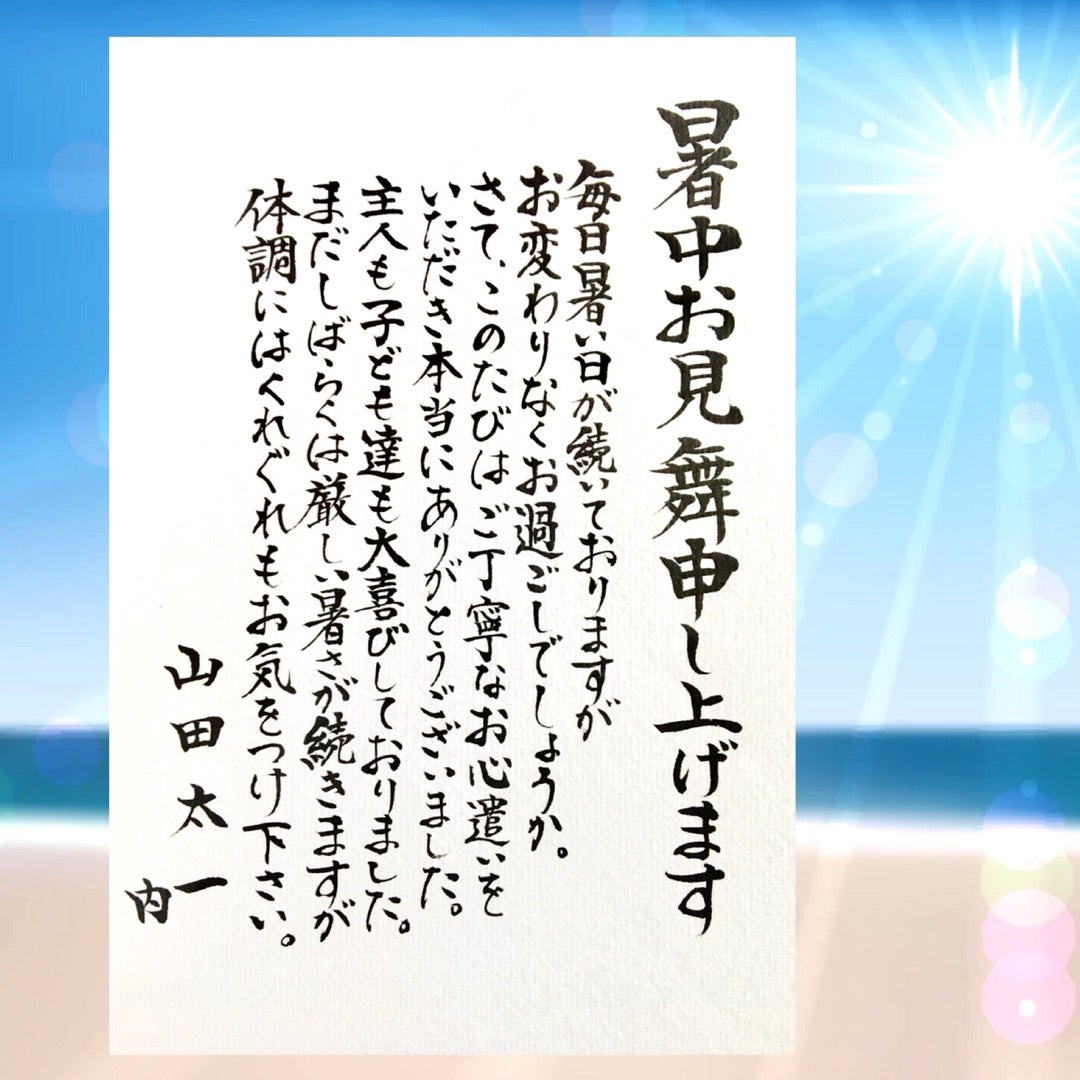 暑中お見舞申し上げます
毎日暑い日が続いておりますが
お変わりなくお過ごしでしょうか。
さて、このたびはご丁寧なお心遣いを
いただき本当にありがとうございました。
主人も子ども達も大喜びしておりました。
まだしばらくは厳しい暑さが続きますが
体調にはくれぐれもお気をつけ下さい。
山田太一
内